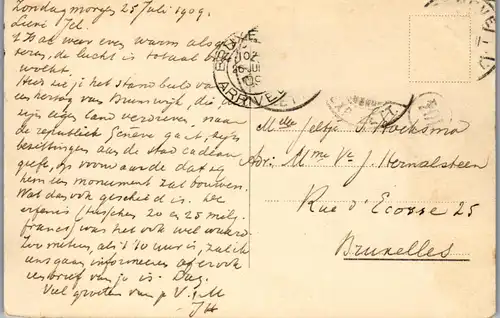 Zondag morgen 25 Juli 1909.
Lieve Jel.
't Zal weer even warm als gis
teren, de lucht is totaal be
wolkt.
Hier zie je het standbeeld van
een hertog van Brunswijk, die,
zijn eigen land verdreven, naar
de republiek Genève gaat, zijn
bezittingen aan de stad cadeau
geeft, op voorwaarde dat zij
hem een monument zal bouwen.
Wat dan ook geschied is. De
erfenis (tusschen 20 en 25 mill.
francs) was het ook wel waard.
Zoo meteen, als 't 10 uur is, zal ik
eens gaan informeeren of er ook
een brief van je is. Dag.
Veel groeten van p V. & M
JH
BRUXE
26 JUI
ARRIVEE
Mlle Jeltje S. Hoeksma
Adr: Mme Ve J. Hernalsteen
Rue d'Ecosse 25
Bruxelles